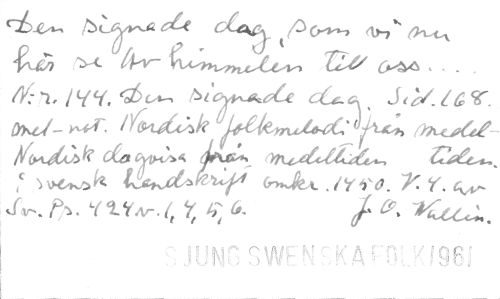 Den signade dag, som vi nu
här se Av himmelen till oss....
N:r. 144. Den signade dag. Sid. 168.
mel-not. Nordisk folkmelodi från medel-
Nordisk dagvisa från medeltiden tiden.
i svensk handskrift omkr. 1450. V. 4. av
Sv. Ps. 424 v. 1, 4, 5, 6. J. O. Wallin.
SJUNG SWENSKA FOLK 1961